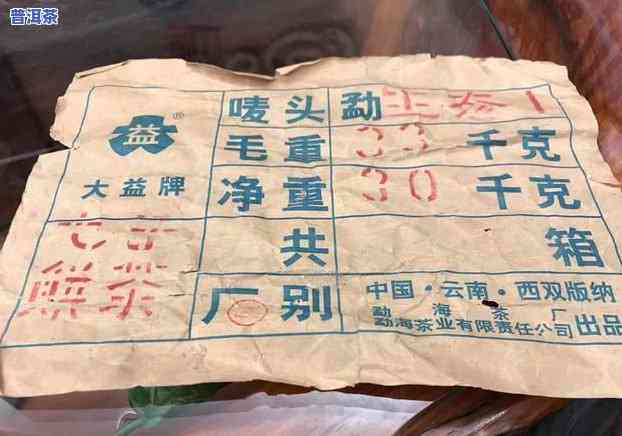 普洱茶
唛头 勐生态1
益®
毛重 33 千克
大益牌
净重 30 千克
七子
饼茶
共 箱
厂别
中国·云南·西双版纳
勐海茶厂
勐海茶业有限责任公司 出品